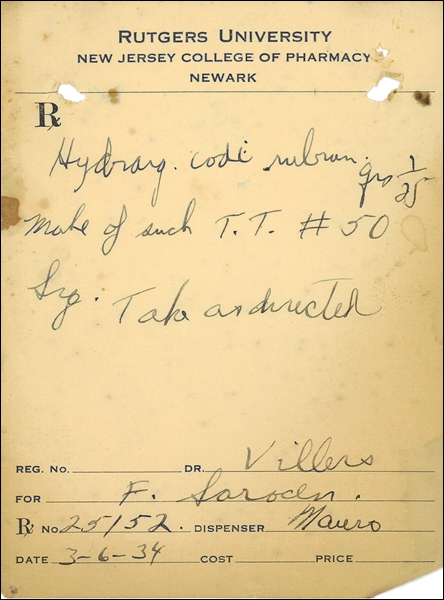 RUTGERS UNIVERSITY
NEW JERSEY COLLEGE OF PHARMACY
NEWARK
℞
Hydrarg. iodi rubrum. grs 1/25
Make of such T.T. # 50
Sig. Take as directed
REG. NO. DR. Villers
FOR F.
℞ NO. 25152. DISPENSER Mauro
DATE 3-6-34 COST PRICE